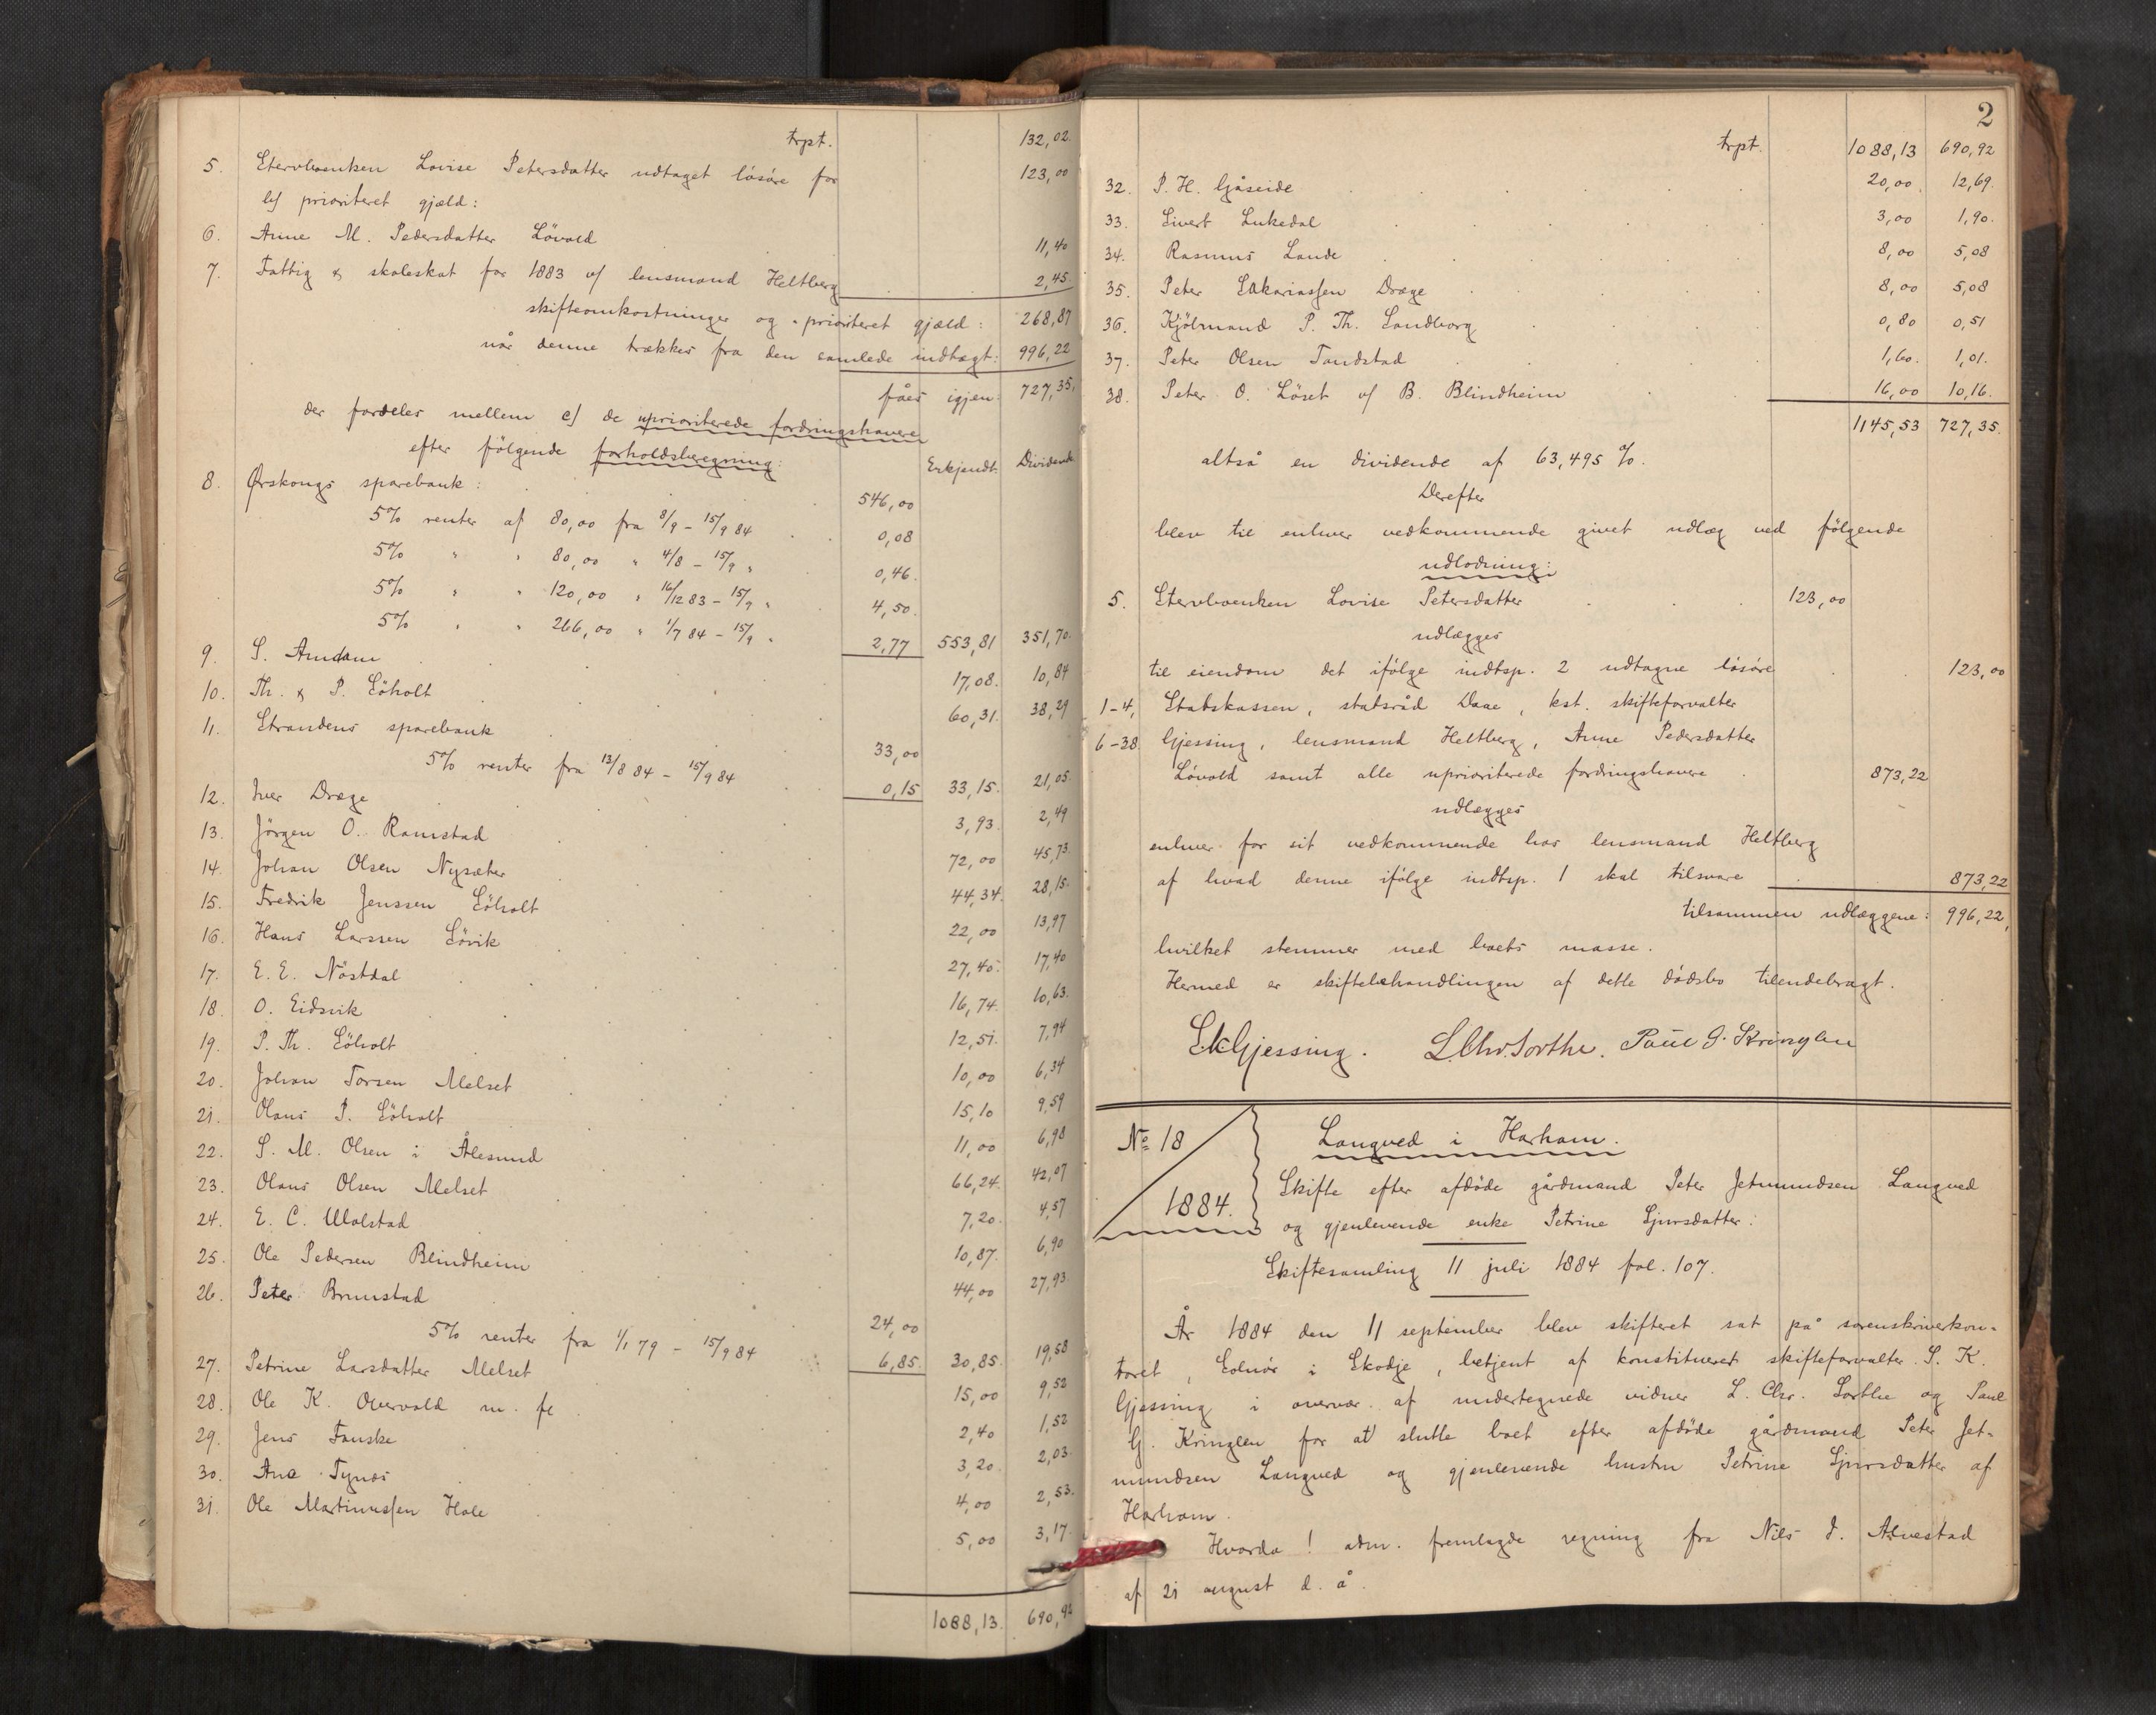 trpt. 132,02.
5. Stervboenken Lovise Petersdatter udtaget lösöre for 123,00
b) prioriteret gjæld:
6. Anne M. Pedersdatter Lövold 11,40
7. Fattig & skoleskat for 1883 v/ lensmand Heltberg 2,45.
skifteomkostninger og prioriteret gjæld: 268,87
når denne trækkes fra den samlede indtægt: 996,22
fåes igjen: 727,35.
der fordeles mellem c) de uprioriterede fordringshavere
efter fölgende forholdsberegning: Erkjendt. Dividende
8. Ørskougs sparebank: 546,00
5% renter af 80,00 fra 8/9 - 15/9 84 0,08
5% " " 80,00 " 4/8 - 15/9 " 0,46.
5% " " 120,00 " 16/12 83 - 15/9 " 4,50.
5% " " 266,00 " 1/7 84 - 15/9 " 2,77 553,81 351,70.
9. S. Amdam 17,08. 10,84
10. Th. & P. Söholt 60,31. 38,29
11. Strandens sparebank 33,00
5% renter fra 13/8 84 - 15/9 84 0,15 33,15. 21,05.
12. Iver Dræge 3,93. 2,49
13. Jörgen O. Ramstad 72,00 45,73.
14. Johan Olsen Nysæter 44,34. 28,15.
15. Fredrik Jenssen Söholt 22,00 13,97
16. Hans Larssen Sövik 27,40. 17,40
17. E. E. Nöstdal 16,74. 10,63.
18. O. Eidsvik 12,51. 7,94
19. P. Th. Söholt 10,00 6,34
20. Johan Torsen Melset 15,10 9,59
21. Olaus P. Söholt 11,00 6,98
22. S. M. Olsen i Ålesund 66,24. 42,07
23. Olaus Olsen Melset 7,20. 4,57
24. E. C. Walstad 10,87. 6,90
25. Ole Pedersen Blindheim 44,00 27,93.
26. Peter Brunstad 24,00
5% renter fra 1/1 79 - 15/9 84 6,85. 30,85. 19,58
27. Petrine Larsdatter Melset 15,00 9,52
28. Ole K. Overvold m. fl. 2,40 1,52
29. Jens Fauske 3,20. 2,03.
30. Ana Tynes 4,00 2,53.
31. Ole Martinussen Hole 5,00 3,17.
1088,13. 690,92
2
trpt. 1088,13 690,92
32. P. H. Gåseide 20,00. 12,69.
33. Sivert Lukedal 3,00 1,90.
34. Rasmus Lande 8,00 5,08
35. Peter Sakariassen Dræge 8,00 5,08
36. Kjöbmand P. Th. Sandborg 0,80 0,51
37. Peter Olsen Tandstad 1,60. 1,01.
38. Peter O. Löset v/ B. Blindheim 16,00 10,16.
1145,53 727,35.
altså en dividende af 63,495 %.
Derefter
blev til enhver vedkommende givet udlæg ved fölgende
udlodning:
5. Stervboenken Lovise Petersdatter 123,00
udlægges
til eiendom det ifölge indtsp. 2 udtagne lösöre 123,00
1-4, Statskassen, statsråd Daae, kst. skifteforvalter
6-38 Gjessing, lensmand Heltberg, Anne Pedersdatter
Lövold samt alle uprioriterede fordringshavere 873,22
udlægges
enhver for sit vedkommende hos lensmand Heltberg
af hvad denne ifölge indtsp. 1 skal tilsvare 873,22
tilsammen udlæggene: 996,22,
hvilket stemmer med boets masse.
Hermed er skiftebehandlingen af dette dödsbo tilendebragt.
S.K.Gjessing. L.Chr.Sorthe. Paul G. Kringlen
No 18
1884.
Langved i Harham.
Skifte efter afdöde gårdmand Peter Jetmundsen Langved
og gjenlevende enke Petrine Sjursdatter:
Skiftesamling 11 juli 1884 fol. 107.
År 1884 den 11 september blev skifteret sat på sorenskriverkon-
toret, Solnör i Skodje, betjent af konstitueret skifteforvalter S. K.
Gjessing i overvær af undertegnede vidner L. Chr. Sorthe og Paul
G. Kringlen for at slutte boet efter afdöde gårdmand Peter Jet-
mundsen Langved og gjenlevende hustru Petrine Sjursdatter af
Harham.
Hvorda! adm. fremlagde regning fra Nils J. Alvestad
af 21 august d. å.